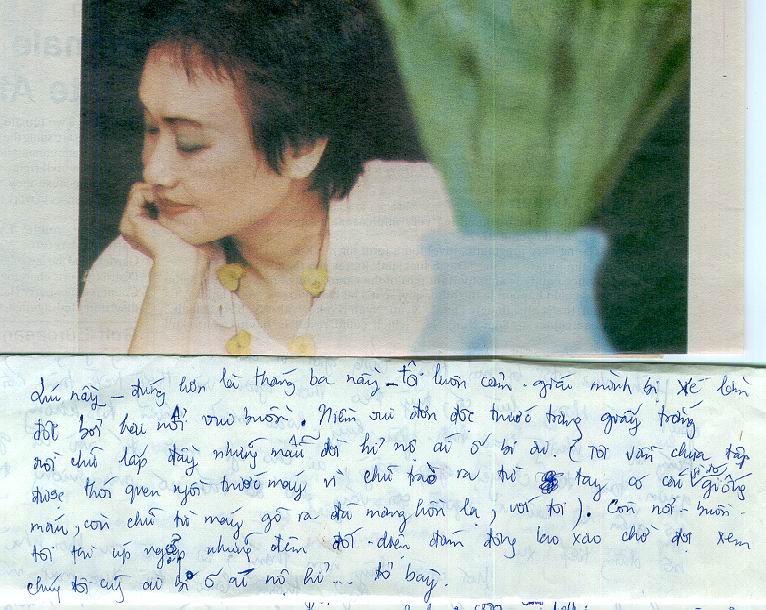 Lúc này – đúng hơn là tháng ba này – tôi luôn cảm giác mình bị xé làm
đôi bởi hai nỗi vui buồn. Niềm vui đơn độc trước trang giấy trắng
rồi chữ lấp đầy những mẩu đời hỉ nộ ái ố bi ai. (Tôi vẫn chưa tập
được thói quen ngồi trước máy vì chữ trào ra từ tay có cái gì đó giống
máu, còn chữ từ máy gõ ra đã mang hồn lạ, với tôi). Còn nỗi buồn
tôi ngợp những đêm đối diện đám đông lao xao chờ đợi xem
chúng tôi ai bi ố ái nộ hỉ ... tỏ bày.